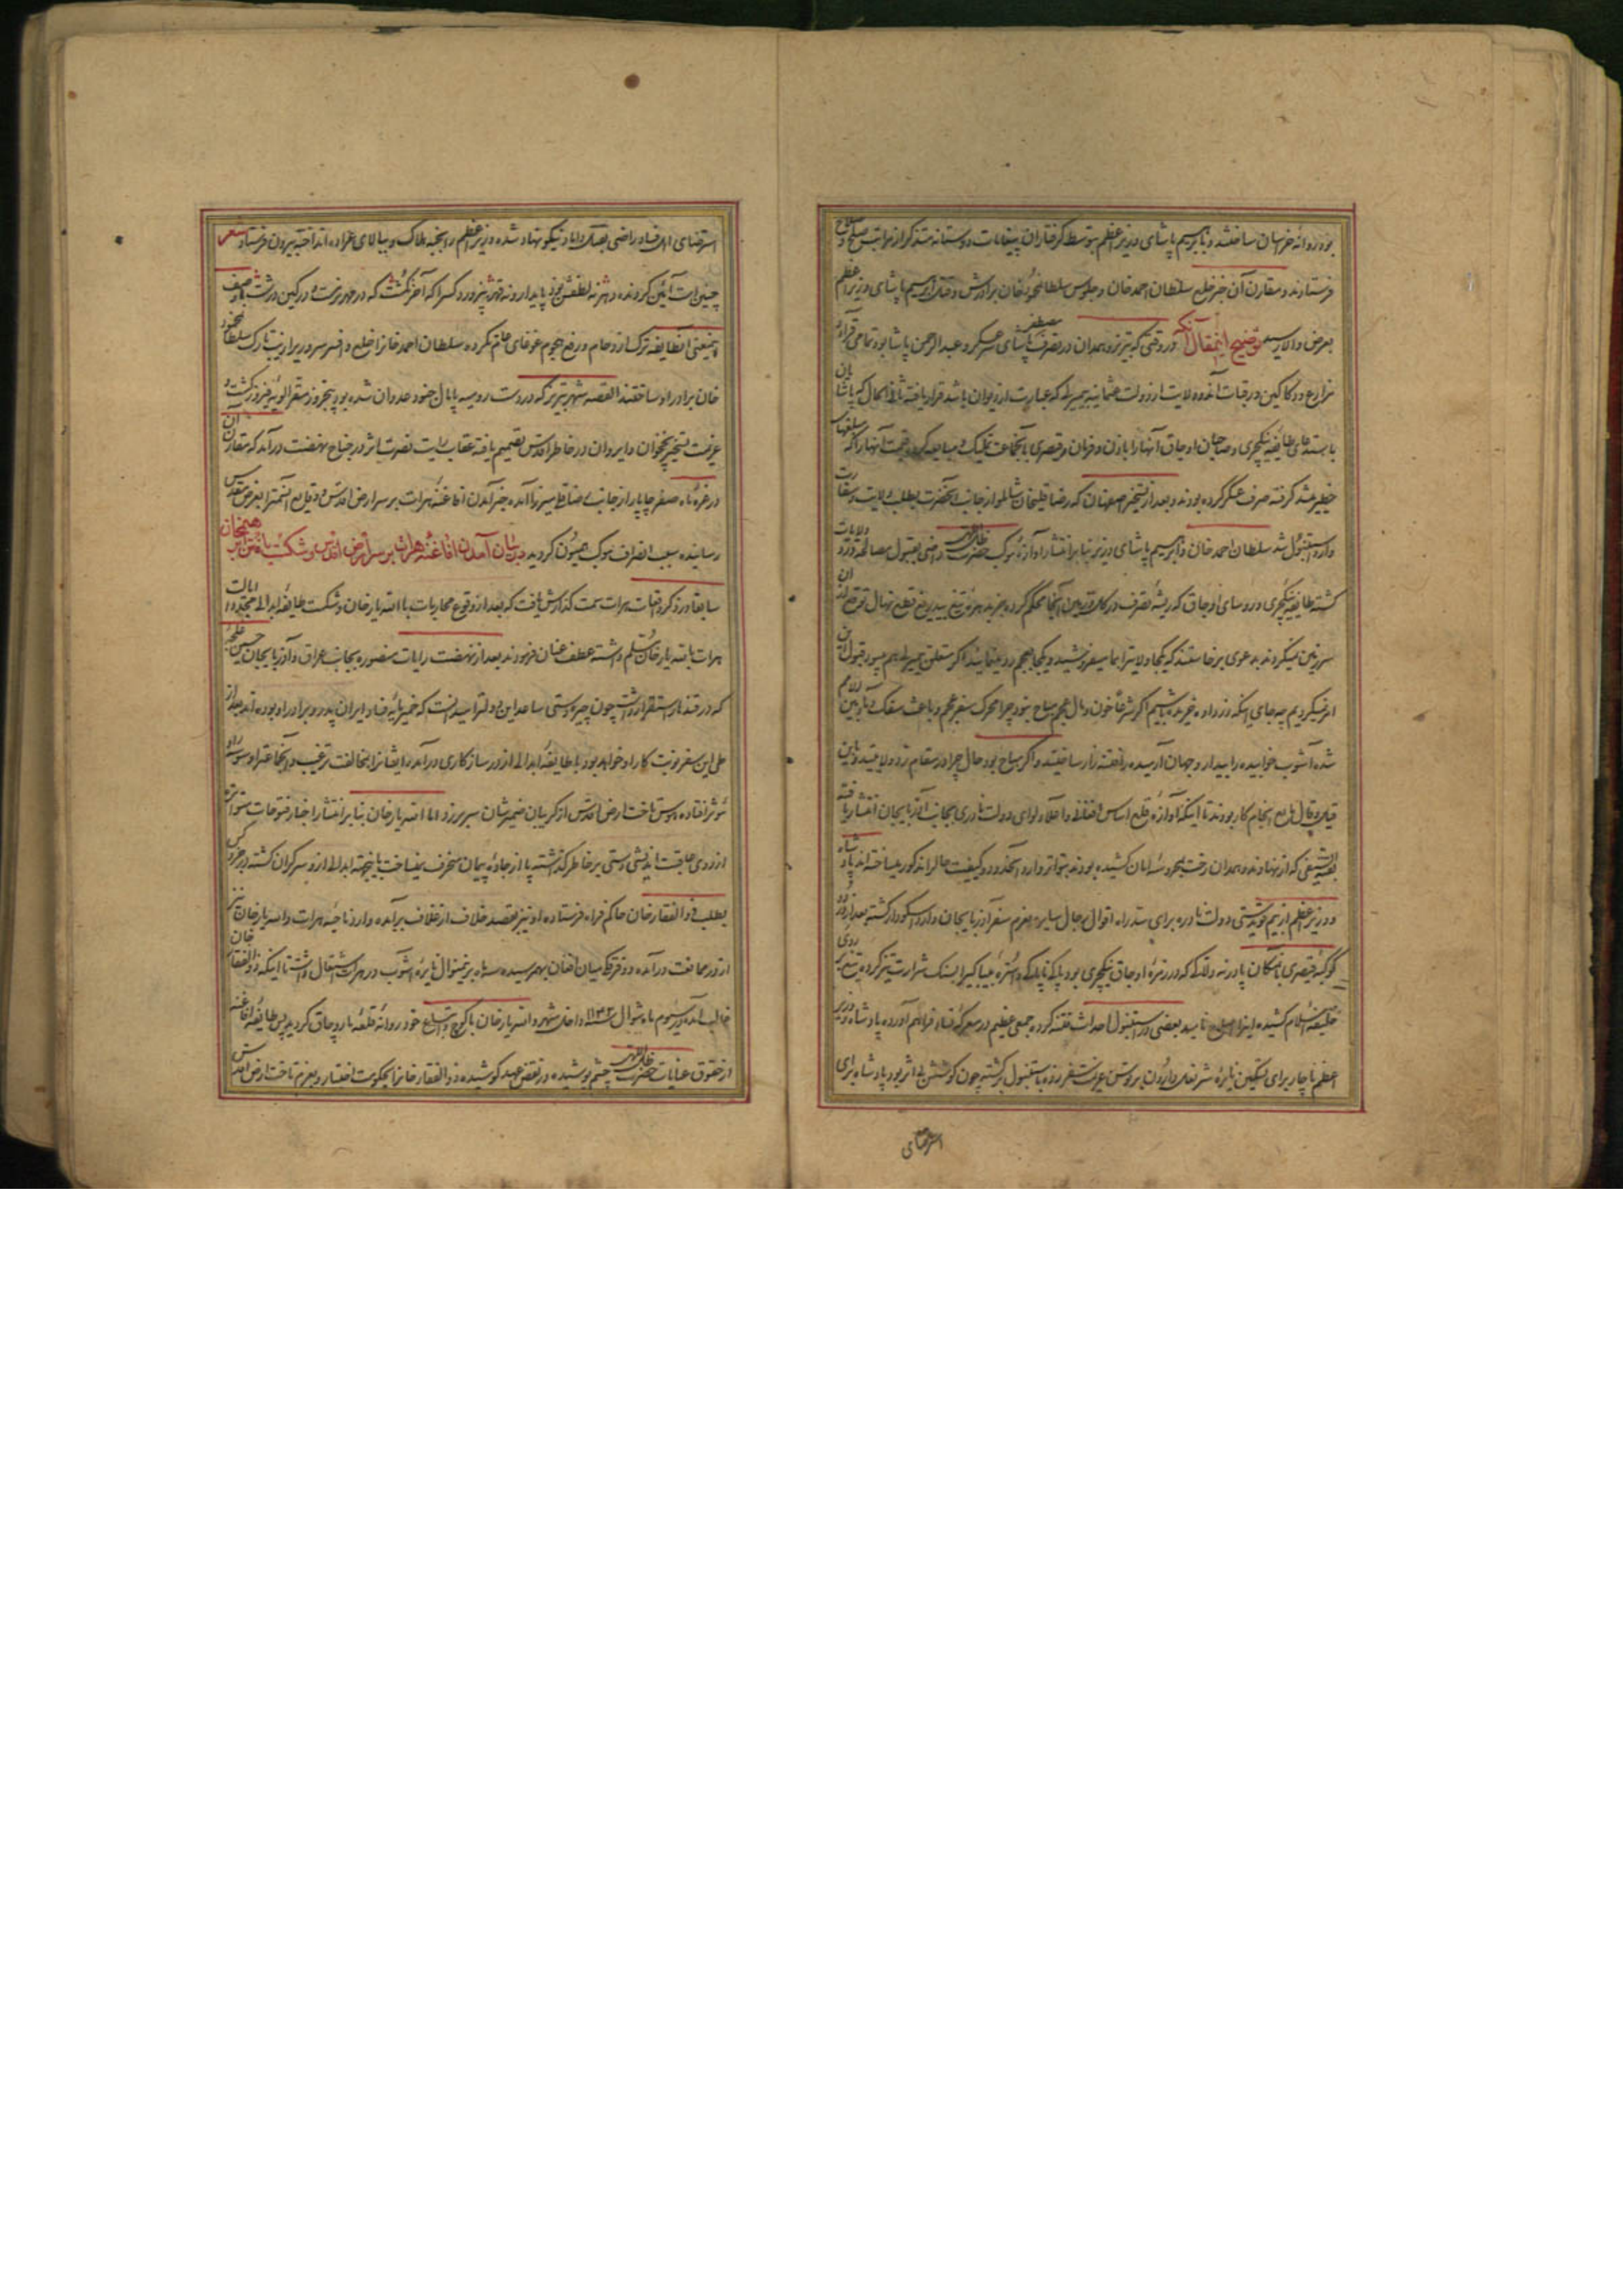 بود روانه خراسان ساختند و ابراهیم پاشای وزیر اعظم بتوسط گرفتاران پیغامات دوستانه متذکر از مراتب صلح و صلاح
فرستادند و مقارن آن خبر خلع سلطان احمد خان و جلوس سلطان محمود خان برادرش و قتل ابراهیم پاشای وزیر اعظم
بعرض والا رسید توضیح اینمقال آنکه در وقتی که تبریز و همدان در تصرف مصطفی پاشای سرعسکر و عبدالرحمن پاشا بود تمامی قرا و
مزارع و دکاکین و رقبات آندو ولایت از دولت عثمانیه بمیری که عبارت از دیوان باشد قرار یافته ثانی الحال که پاشایان
بایستهای طایفه ینکچری و صاحبان اوجاق آنها را باذن و فرمان قیصری بآنجماعت تملیک و مبایعه کرده قیمت آنها را که مبلغهای
خطیر میشد گرفته صرف عسکر کرده بودند و بعد از تسخیر اصفهان که رضا قلیخان شاملو از جانب آنحضرت بطلب ولایت و سفارت
وارد استنبول شد سلطان احمد خان و ابراهیم پاشای وزیر بنابر انتشار آوازه موکب حضرت ظل اللهی راضی بقبول مصالحه و رد ولایات
گشته طایفه ینکچری و رؤسای اوجاق که ریشه تصرف در املاک و زمین آنجا محکم کرده
سرزمین میکردند بدعوی برخاستند که یکجا ولایت را بما میفروشید و یکجا بعجم رد مینمائید اگر متعلق بمیری هم میبود قبول این
امر نمیکردیم چه جای اینکه زر داده خریده باشیم اگر شرعا خون و مال عجم مباح نبود چرا محرک سفر عجم و باعث سفک دماء
شده آشوب خوابیده را بیدار و جهان آرمیده را فتنه زار ساختید و اگر مباح بود حال چرا در مقام رد ولایتید و باین
قیل و قال مانع انجام کار بودند تا اینکه آوازه قلع اساس و اعلاء لوای دولت نادری بجانب آذربایجان انتشار یافته
بقیة السیفی که از نهاوند و همدان رخت بمحروسه امان کشیده بودند بتواتر وارد آنحدود و کیفیت حال را مذکور میساختند پادشاه
و وزیر اعظم از بیم دولت نادره برای سد راه اقوال رجال سایره بعزم سفر آذربایجان وارد اسکودار گشته بعد از ورود
کوکبه قیصری بآنمکان پادرنه ولاکه که در زمره اوجاق ینکچری بود
خلیفه اسلام کشیده بعضی در استنبول احداث فتنه کرده جمعی عظیم در معرکه فساد فراهم آورده پادشاه و وزیر
اعظم ناچار برای تسکین نایره شر عزیمت سفر زده باستنبول برگشته چون کوشش بی اثر بود پادشاه برای
استرضای
استرضای اهل فساد راضی بهلاک داماد نیکو نهاد شده وزیر اعظم را بخبه هلاک و ببالای عراده انداخته بیرون فرستاد شعر
چنین است آئین گردنده دهر نه لطفش بود پایدار و نه قهر نپرورد کس را که آخر نکشت که در مهر نرمست و در کین درشت با وصف
اینمعنی آنطایفه ترک ازدحام و رفع هجوم غوغای عام نکرده سلطان احمد خانرا خلع و افسر سروری را زینت تارک سلطان محمود
خان برادر او ساختند القصه شهر تبریز که در دست رومیه پایمال جنود عدوان شده بود پنجروز مقر الویه فیروز گشت و
عزیمت تسخیر نخجوان و ایروان در خاطر اقدس تصمیم یافته عقاب رایت نصرت اثر در جناح نهضت درآمد که مقارن آن
در غره ماه صفر چاپار از جانب آمده خبر آمدن افاغنه هرات بر سر ارض اقدس و وقایع آنسمت را بعرض مقدس
رسانیده سبب انصراف موکب همیون گردید در بیان آمدن افاغنه هرات بر سر ارض اقدس و شکست یافتن ابراهیمخان
سابقا در ذکر وقعیات هرات سمت گذارش یافت که بعد از وقوع محاربات با الله یار خان و شکست طایفه ابدالی مجددا ایالت
هرات بالله یار خان مسلم داشته عطف عنان فرمودند بعد از نهضت رایات منصوره بجانب عراق و آذربایجان حسین غلجه
که در قندهار استقرار داشت چون چیره دستی ساعد این دولت را میدانست که خمیر مایه فساد ایران پدر و برادر او بوده اند بعد از
طی این سفر نوبت کار او خواهد بود با طایفه ابدالی از در سازگاری درآمد ایشانرا بمخالفت ترغیب و آنجماعت را وسوسه او
مؤثر افتاده هوس تاخت ارض اقدس از گریبان ضمیرشان سر برزد و اما الله یار خان بنابر انتشار اخبار فتوحات متواتره
از روی عاقبت اندیشی دستی بر خاطر گذاشته پا از جاده پیمان منحرف نمیساخت باینجهة ابدالی از او سرگران گشته
بطلب ذوالفقار خان حاکم فراه فرستاده او نیز بقصد خلاف از غلاف برآمده وارد ناحیه هرات و الله یار خان نیز
از در ممانعت درآمده دو فرقه میان افغان بهم رسیده سه ماه برینمنوال نایره آشوب در هرات اشتعال داشت تا اینکه ذوالفقار خان
غالب آمده در سیوم ماه شوال سنه ۱۱۴۲ داخل شهر و الله یار خان با کوچ و اتباع خود روانه قلعه ماروچاق گردید پس طایفه افاغنه
از حقوق عنایات حضرت ظل اللهی چشم پوشیده در نقض عهد کوشیده ذوالفقار خانرا بحکومت اختیار و بعزم تاخت ارض اقدس